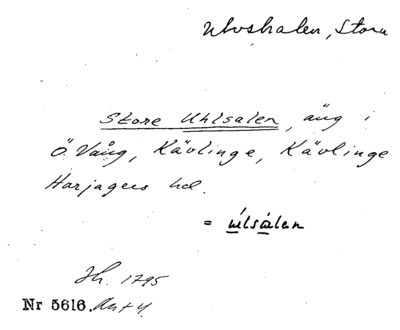 Ulvshalen, Stora
Store Uhlsalen, äng i
Ö. Vång, Kävlinge, Kävlinge
Harjagers hd.
= úlsálen
Jh. 1795
Nr 5616. Akt 4